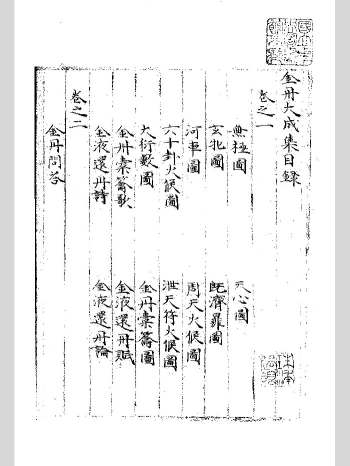 金丹大成集目録
卷之一
無極圖 天心圖
玄牝圖 旣濟羅圖
河車圖 周天火候圖
六十卦火候圖 泄天符火候圖
大衍數圖 金丹橐籥圖
金丹橐籥歌 金液還丹賦
金液還丹詩 金液還丹論
卷之二
金丹問荅